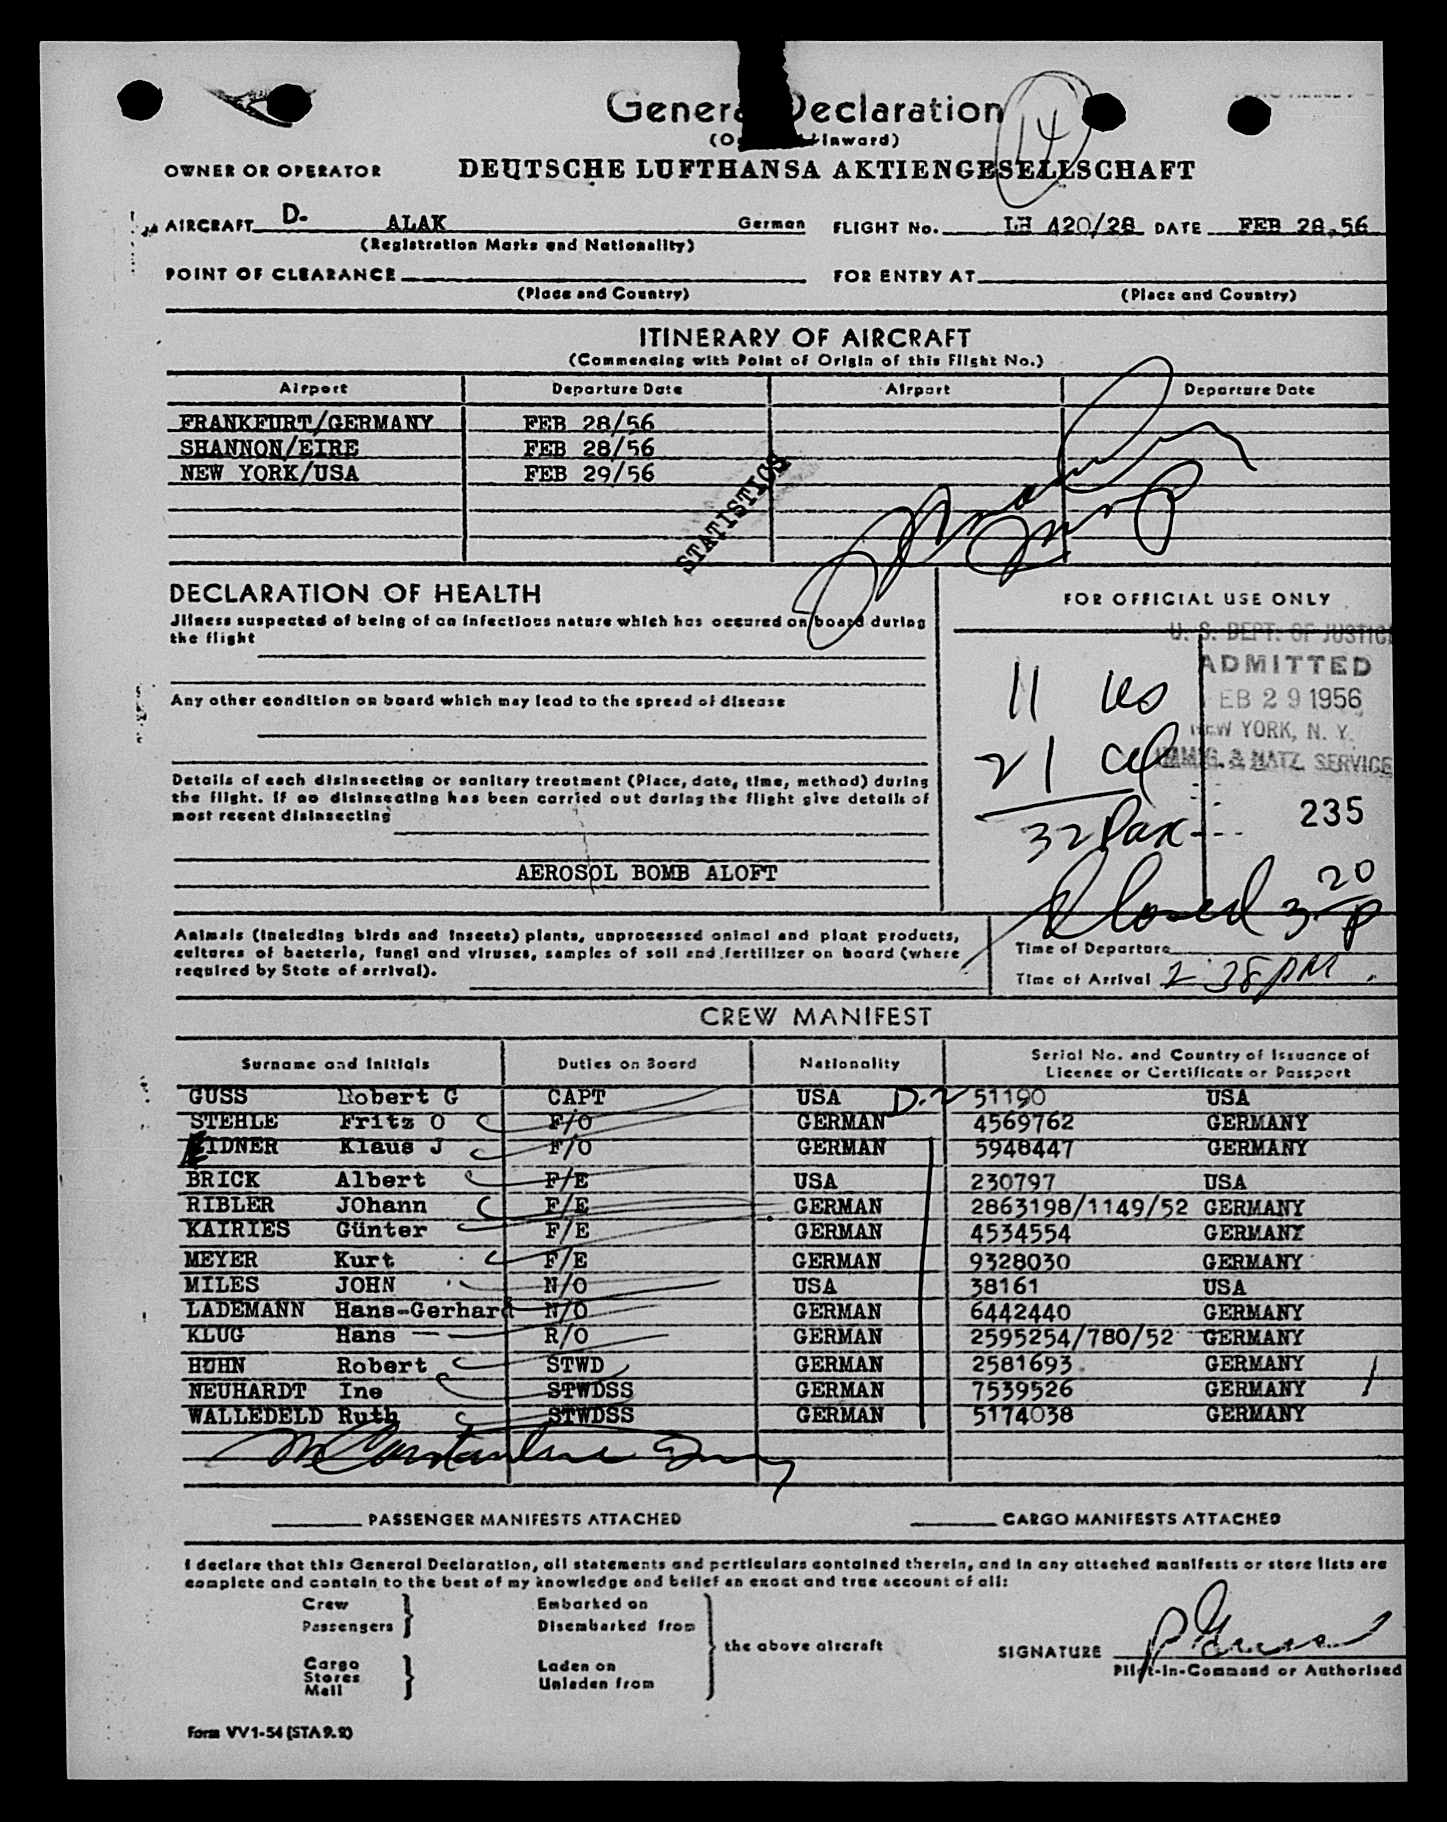 General Declaration
(O Inward)
14
OWNER OR OPERATOR DEUTSCHE LUFTHANSA AKTIENGESELLSCHAFT
AIRCRAFT D. ALAK German FLIGHT No. LH 420/28 DATE FEB 28.56
(Registration Marks and Nationality)
POINT OF CLEARANCE FOR ENTRY AT
(Place and Country) (Place and Country)
ITINERARY OF AIRCRAFT
(Commencing with Point of Origin of this Flight No.)
Airport Departure Date Airport Departure Date
FRANKFURT/GERMANY FEB 28/56
SHANNON/EIRE FEB 28/56
NEW YORK/USA FEB 29/56
STATISTICS
DECLARATION OF HEALTH
Jllness suspected of being of an infectious nature which has occured on board during
the flight
Any other condition on board which may lead to the spread of disease
Details of each disinsecting or sanitary treatment (Place, date, time, method) during
the flight. If no disinsecting has been carried out during the flight give details of
most recent disinsecting
AEROSOL BOMB ALOFT
FOR OFFICIAL USE ONLY
U. S. DEPT. OF JUSTICE
ADMITTED
FEB 29 1956
NEW YORK, N. Y.
IMMIG. & NATZ. SERVICE
235
11 us
21 al
32 Pax
Closed 3 20 P
Animals (including birds and insects) plants, unprocessed animal and plant products,
cultures of bacteria, fungi and viruses, samples of soil and fertilizer on board (where
required by State of arrival).
Time of Departure
Time of Arrival 2 38 PM
CREW MANIFEST
Surname and Initials Duties on Board Nationality Serial No. and Country of Issuance of
Licence or Certificate or Passport
GUSS Robert G CAPT USA D-2 51190 USA
STEHLE Fritz O F/O GERMAN 4569762 GERMANY
EIDNER Klaus J F/O GERMAN 5948447 GERMANY
BRICK Albert F/E USA 230797 USA
RIBLER JOhann F/E GERMAN 2863198/1149/52 GERMANY
KAIRIES Günter F/E GERMAN 4534554 GERMANY
MEYER Kurt F/E GERMAN 9328030 GERMANY
MILES JOHN N/O USA 38161 USA
LADEMANN Hans-Gerhard N/O GERMAN 6442440 GERMANY
KLUG Hans R/O GERMAN 2595254/780/52 GERMANY
HUHN Robert STWD GERMAN 2581693 GERMANY
NEUHARDT Ine STWDSS GERMAN 7539526 GERMANY
WALLEDELD Ruth STWDSS GERMAN 5174038 GERMANY
PASSENGER MANIFESTS ATTACHED CARGO MANIFESTS ATTACHED
I declare that this General Declaration, all statements and particulars contained therein, and in any attached manifests or store lists are
complete and contain to the best of my knowledge and belief an exact and true account of all:
Crew Embarked on
Passengers Disembarked from
the above aircraft
Cargo Laden on
Stores
Mail Unladen from
SIGNATURE R Guss
Pilot-in-Command or Authorised
Form VV 1-54 (STA 9. 2)